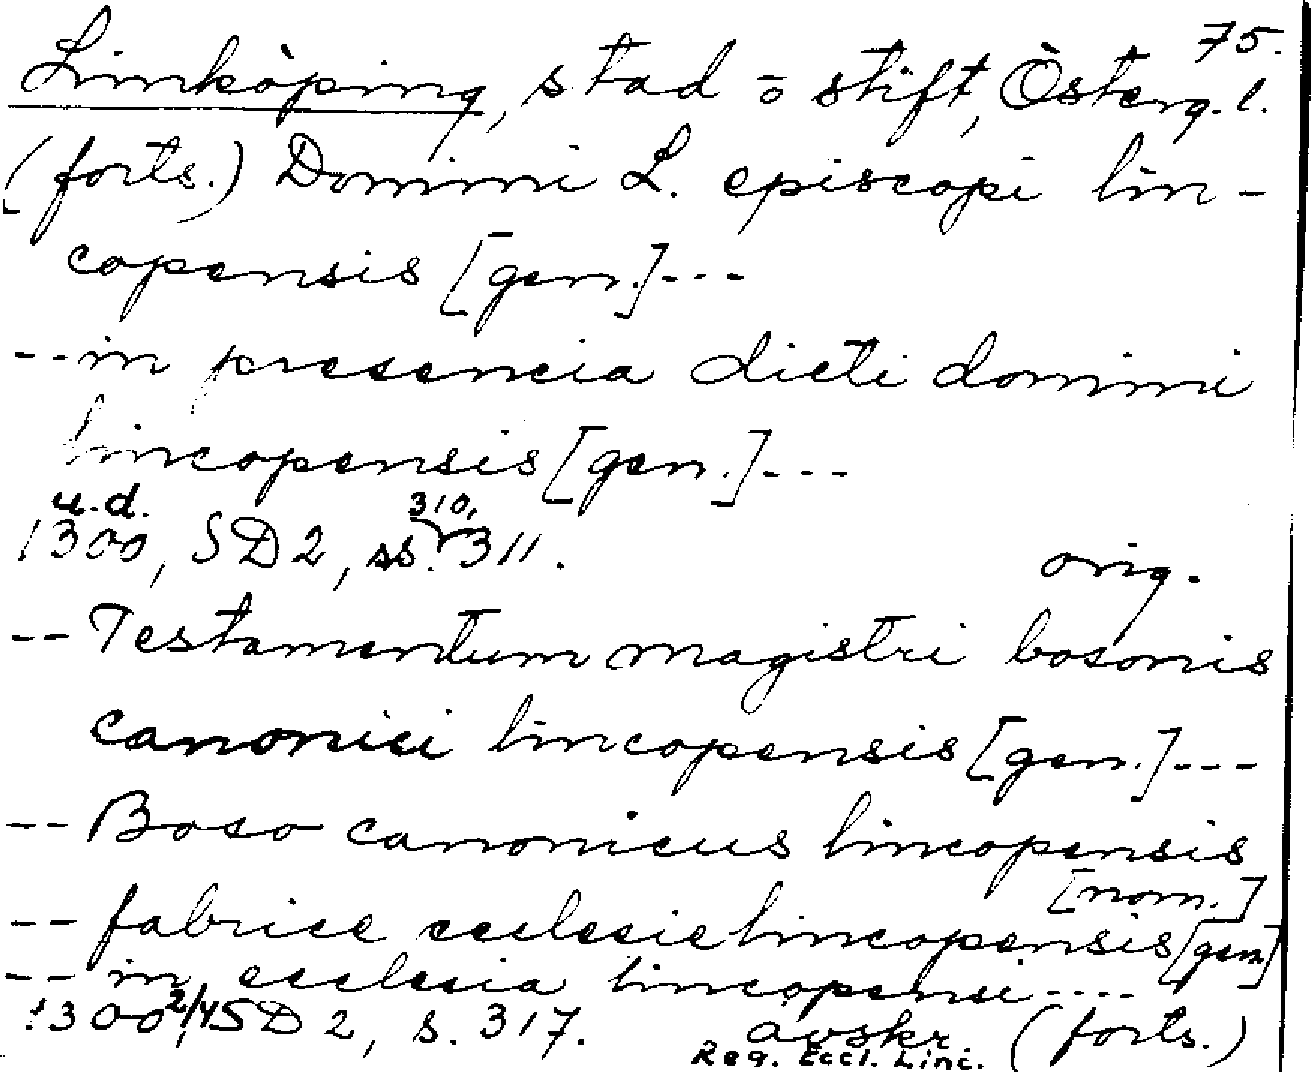 75.
Linköping, stad o stift, Österg. l.
(forts.) Domini L. episcopi lin-
copensis [gen.] ---
-- in presencia dicti domini
lincopensis [gen.] ---
u.d. 310,
1300, SD 2, ss. 311.
orig.
-- Testamentum magistri bosonis
canonici lincopensis [gen.] ---
-- Boso canonicus lincopensis
[nom.]
-- fabrice ecclesie lincopensis [gen]
-- in ecclesia lincopensi ----
1300 2/4 SD 2, s. 317. avskr. (forts.)
Reg. Eccl. Linc.